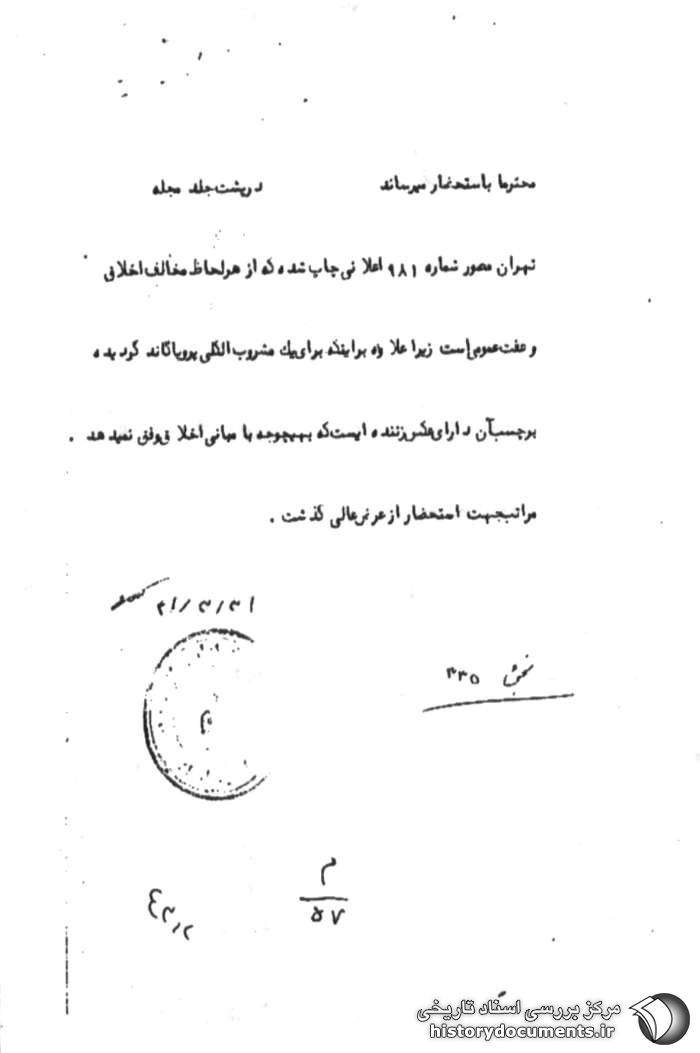 محترما باستحضار میرساند در پشت جلد مجله
تهران مصور شماره ۹۸۱ اعلانی چاپ شده که از هر لحاظ مخالف اخلاق
و عفت عمومی است زیرا علاوه بر اینکه برای یک مشروب الکلی پروپاگاند گردیده
برچسب آن دارای عکس زننده ایست که بهیچوجه با مبانی اخلاق وفق نمیدهد .
مراتب جهت استحضار از عرض عالی گذشت .
۴۱/۳/۳۱
بخش ۳۳۵
م
۵۷
مرکز بررسی اسناد تاریخی
historydocuments.ir